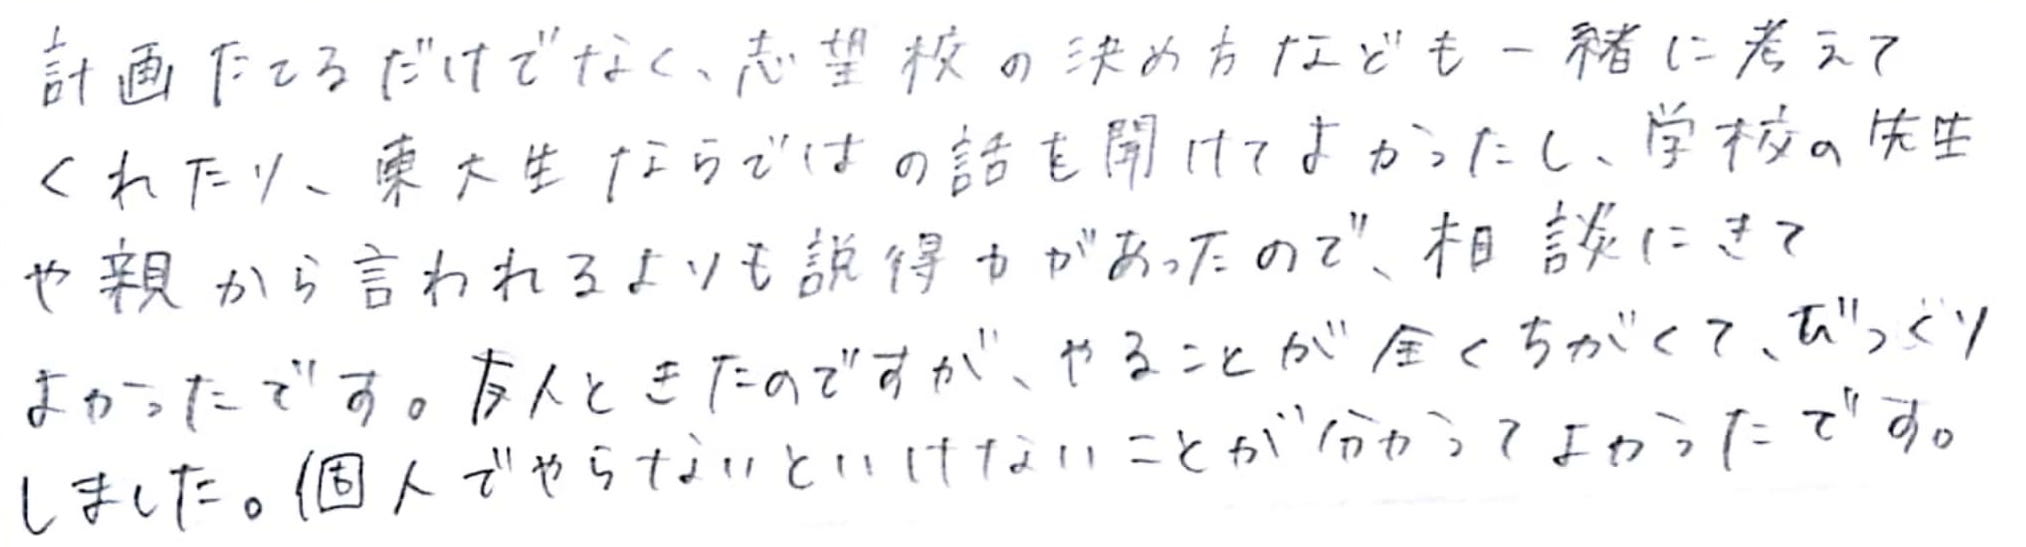 計画たてるだけでなく、志望校の決め方なども一緒に考えて
くれたり、東大生ならではの話を聞けてよかったし、学校の先生
や親から言われるよりも説得力があったので、相談にきて
よかったです。友人ときたのですが、やることが全くちがくて、びっくり
しました。個人でやらないといけないことが分かってよかったです。